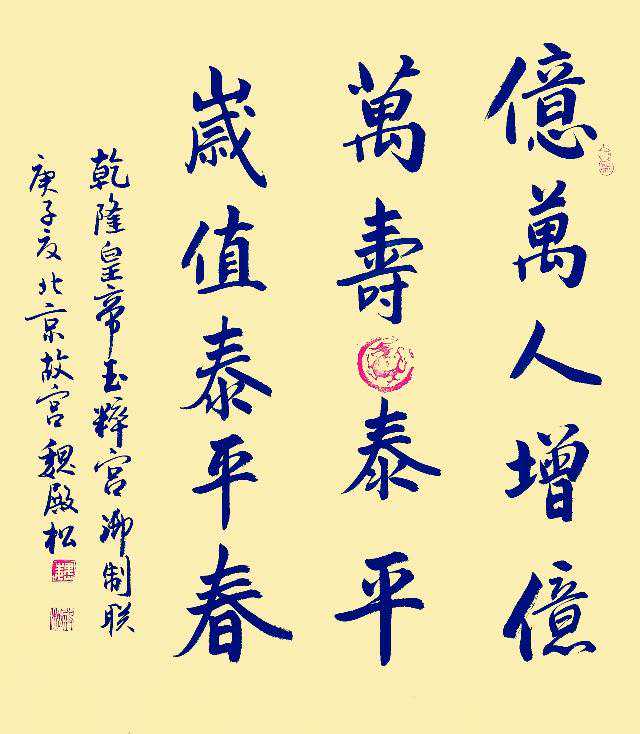 億萬人增億
萬壽泰平
歲值泰平春
乾隆皇帝玉粹宮御制联
庚子夏北京故宮魏殿松